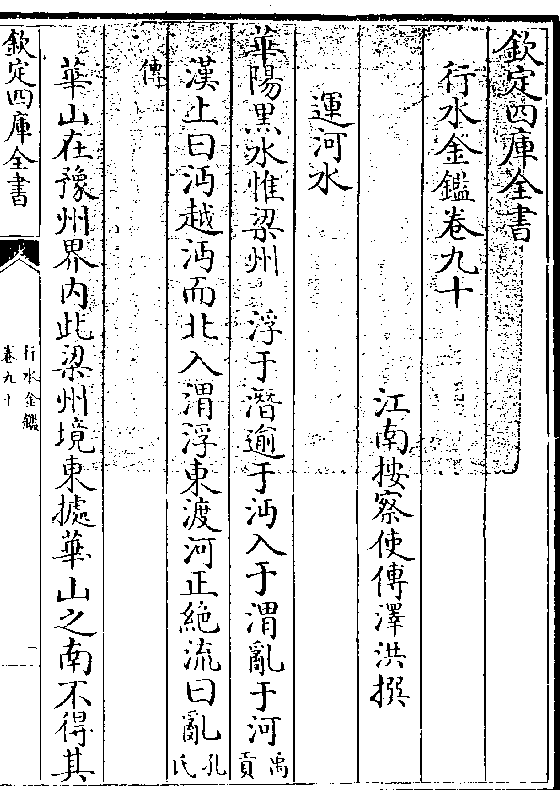 欽定四庫全書
行水金鑑卷九十
江南按察使傅澤洪撰
運河水
華陽黒水惟梁州　浮于潛逾于沔入于渭亂于河禹貢
漢上曰沔越沔而北入渭浮東渡河正絶流曰亂孔氏
傳
華山在豫州界内此梁州境東據華山之南不得其
欽定四庫全書
行水金鑑
卷九十
一